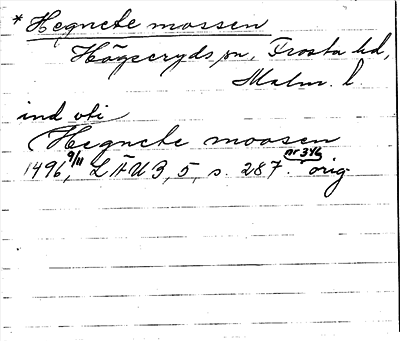 * Hegnete mossen
Högseryds sn, Frosta hd,
Malm. l.
ind vti
Hegnete moosen
1496 9/11, LÄUB, 5, s. 287. nr 346 orig